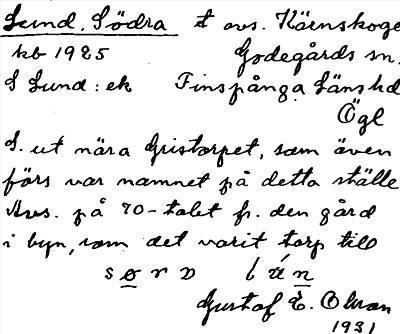 Lund, Södra t avs. Kärnskoge
kb 1925 Godegårds sn.
S Lund: ek Finspånga Läns hd
Ögl
L. ut nära Gristorpet, som även
förs var namnet på detta ställe
Avs. på 70-talet fr. den gård
i byn, som det varit torp till
Gustaf E.
1931